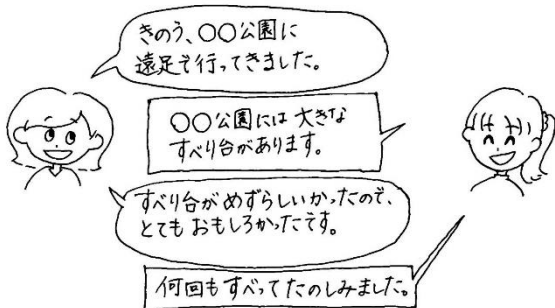 きのう、○○公園に
遠足で行ってきました。
○○公園には 大きな
すべり台があります。
すべり台が めずらしいかったので、
とても おもしろかったです。
何回も すべって たのしみました。